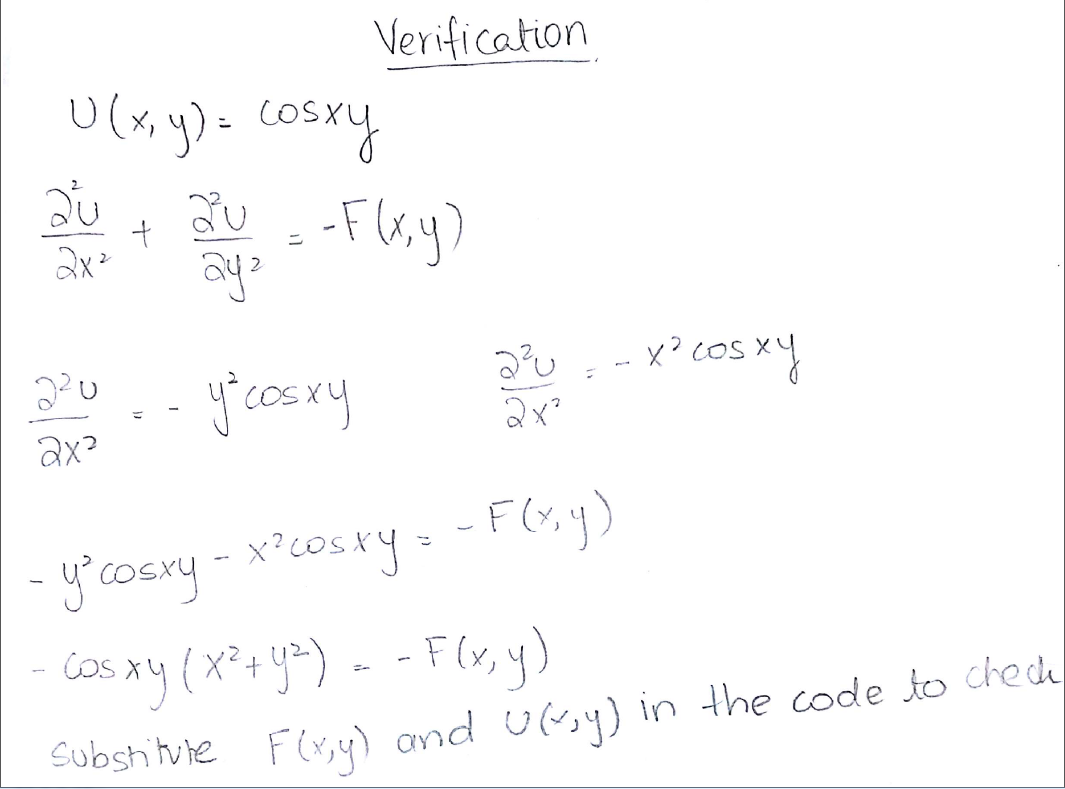 Verification
U(x, y) = cosxy
∂²U/∂x² + ∂²U/∂y² = -F(x,y)
∂²U/∂x² = - y²cosxy    ∂²U/∂x² = - x² cosxy
- y²cosxy - x²cosxy = - F(x,y)
- Cosxy (x²+y²) = - F(x,y)
Substitute F(x,y) and U(x,y) in the code to check